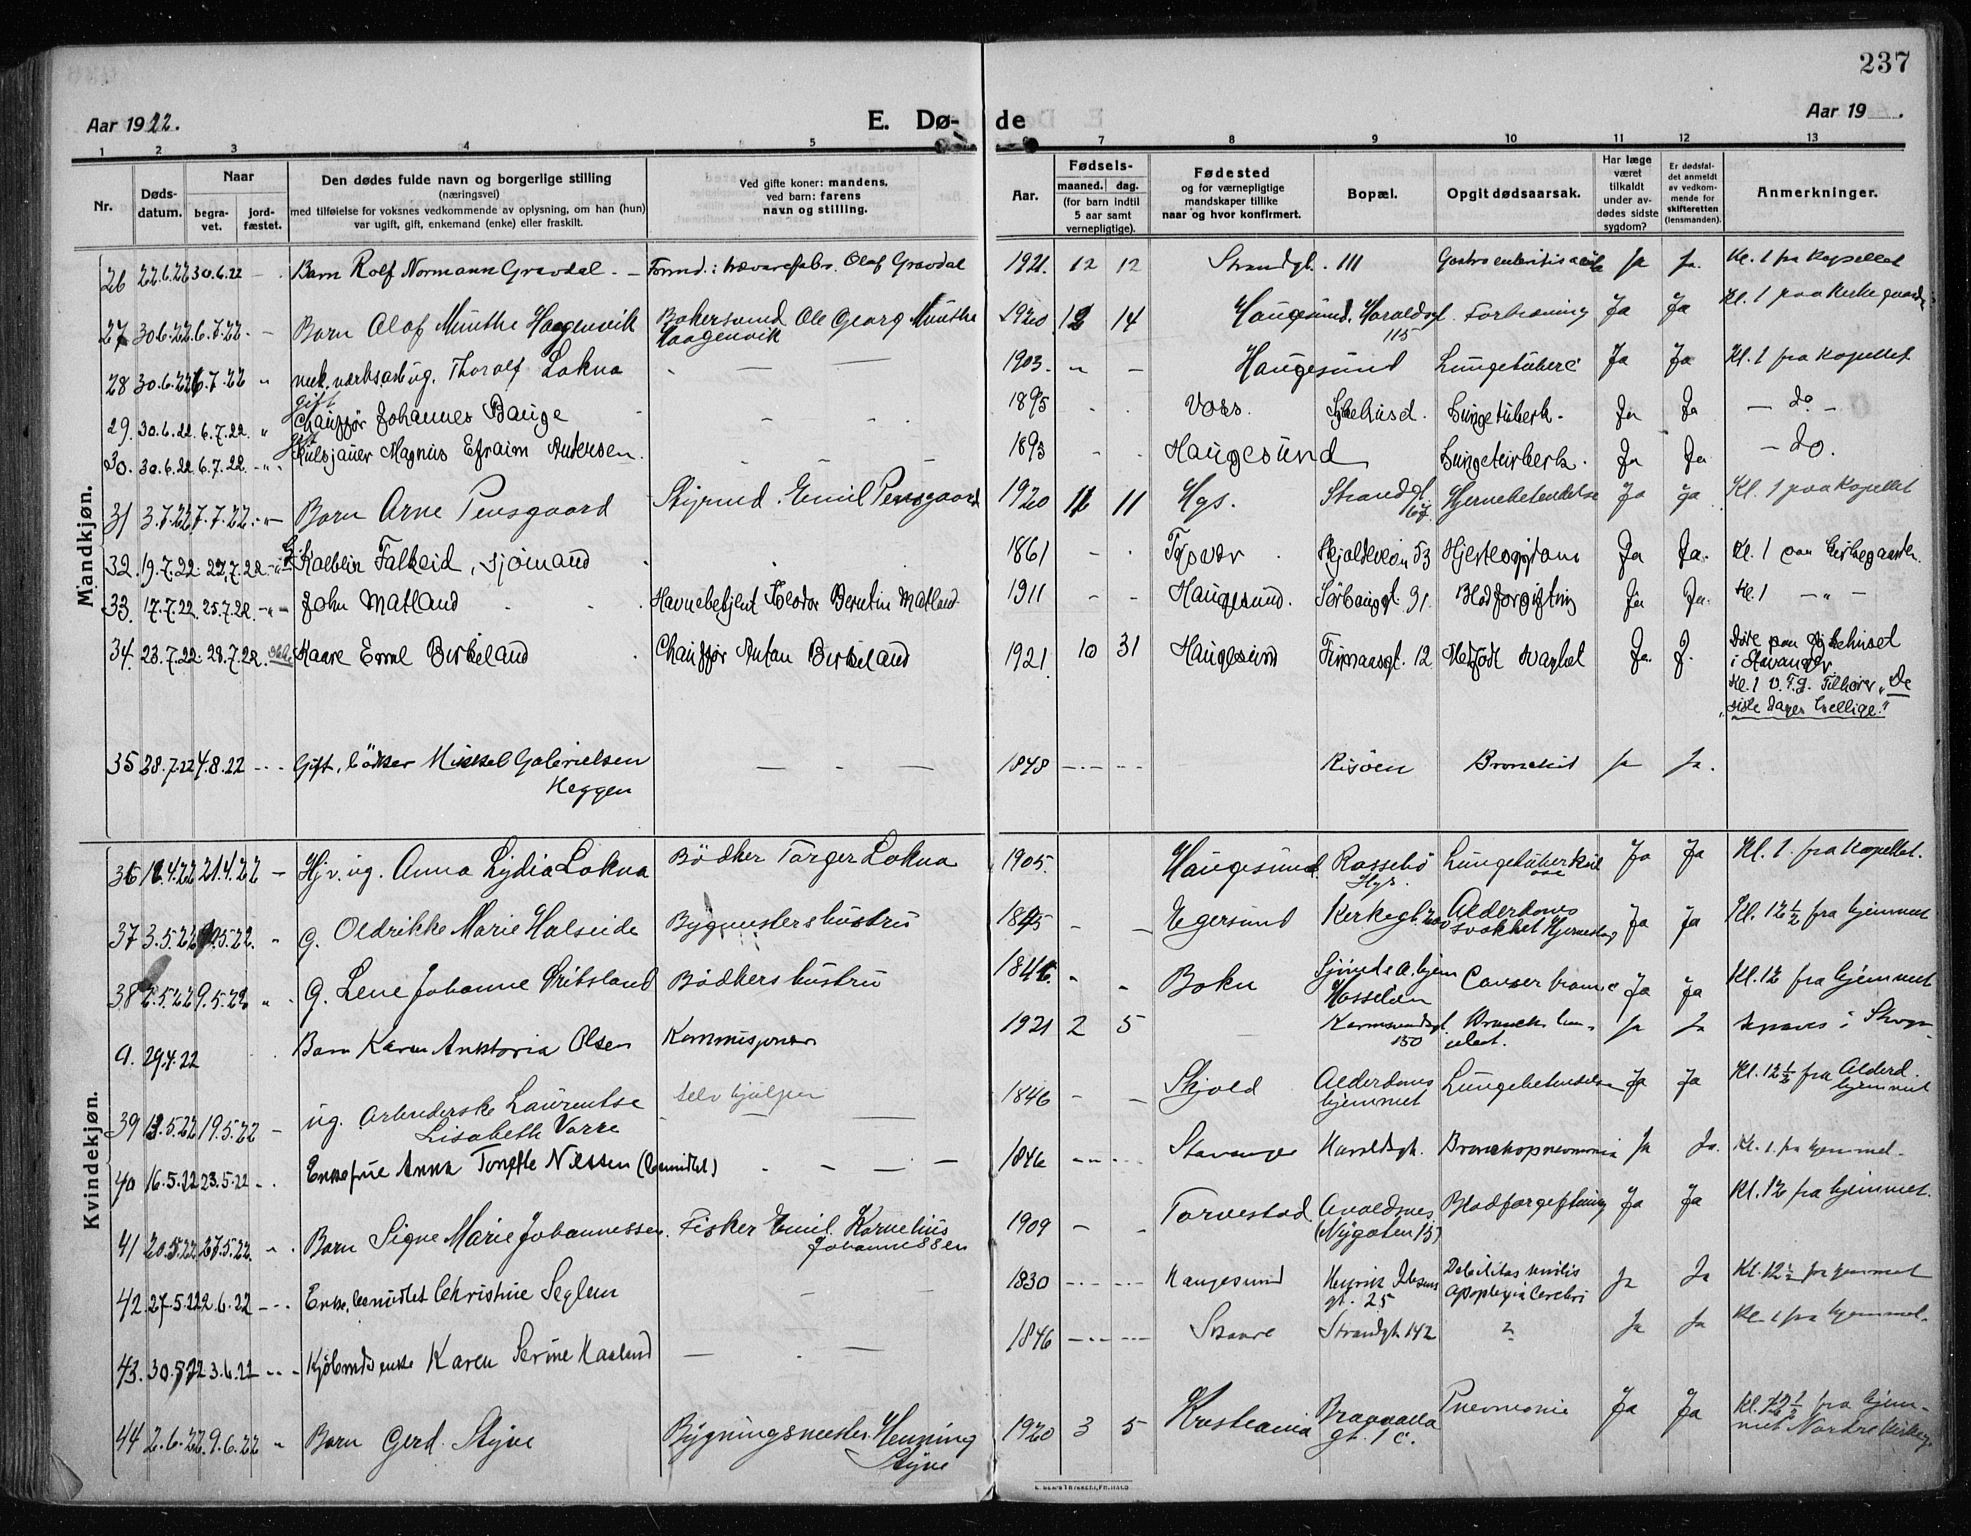 237
Aar 1922. E. Dø- de Aar 19 .
1 2 3 4 5 6 7 8 9 10 11 12 13
Nr. Døds-datum. Naar begra-vet. jord-fæstet.
Den dødes fulde navn og borgerlige stilling
(næringsvei)
med tilføielse for voksnes vedkommende av oplysning, om han (hun)
var ugift, gift, enkemand (enke) eller fraskilt.
Ved gifte koner: mandens,
ved barn: farens
navn og stilling.
Aar.
Fødsels-
maaned. dag.
(for barn indtil
5 aar samt
vernepligtige).
Fødested
og for værnepligtige
mandskaper tillike
naar og hvor konfirmert.
Bopæl.
Opgit dødsaarsak.
Har læge
været
tilkaldt
under av-
dødes sidste
sygdom?
Er dødsfal-
det anmeldt
av vedkom-
mende for
skifteretten
(lensmanden).
Anmerkninger.
Mandkjøn.
26 22.6.22 30.6.22 - Barn Rolf Normann Gravdal. - Formd. i trævarefabr. Olaf Gravdal 1921. 12 12 Strandgt. 111 Gastroenteritis acuta Ja Ja. Kl. 1 fra Kapellet
27 30.6.22 6.7.22 - Barn Olaf Munthe Haagenvik Bakersvend Ole Georg Munthe Haagenvik 1920 12 14 Haugesund. Haraldsgt. 115 Forbrænning Ja Ja Kl. 1 paa Kirkegaarden
28 30.6.22 6.7.22 " mek. værksarb ug. Thoralf Lokna - — — 1903. - — Haugesund Lungetuberc Ja Ja Kl. 1 fra Kapellet
29. 30.6.22 6.7.22 " gift Chauffør Johannes Bauge 1895 - - Voss. Sykehusd. Lungetuberk. Ja Ja — do —
30. 30.6.22 6.7.22 -"- gift Kulsjauer Magnus Efraim Andersen. 1893 - - Haugesund Lungetuberk. Ja Ja — do.
31 3.7.22 7.7.22. -"- Barn Arne Pensgaard Styrmd. Emil Pensgaard 1920 11 11 Hgs. Strandgt. 167 Hjernebetendelse Ja Ja Kl. 1 paa Kapellet
32. 19.7.22 22.7.22 -"- Falkeid, sjømand 1861 - - Tysvær Skjoldeveien 53 Hjertesygdom Ja Ja. Kl. 1 paa Kirkegaarden.
33. 17.7.22. 25.7.22. -"- John Matland Havnebetjent Teodor Berentin Matland 1911 - - Haugesund. Sørhauggt. 91. Blodforgiftning Ja Ja. Kl. 1 — " —
34. 23.7.22. 28.7.22. Kaare Emil Birkeland Chauffør Anton Birkeland 1921 10 31 Haugesund 12 Medfødt svaghet Ja. J. Døde paa sykehuset
i Stavanger
Kl. 1 v. T.g. Tilhører „De
„siste dages hellige."
35 28.7.22 4.8.22 - - - Gift, bødker Mikkel Gabrielsen
Heggen — — — 1848 —.— —.— Risøen Bronchit Ja Ja.
Kvindekjøn.
36 16.4.22 21.4.22 — Hj.v. ug. Anna Lydia Lokna Bødker Torger Lokna 1905. Haugesund. Rossebø
Hgs. Lungetuberkul
ose Ja Ja Kl. 1. fra Kapellet.
37 3.5.22 5.22. " g. Oldrikke Marie Halseide Bygmesters hustru 1845 - — Egersund Kirkegt. Alderdoms
svakhet Hjerneslag Ja Ja Kl. 12 ½ fra hjemmet
38 2.5.22 9.5.22 " g. Lene Johanne Bødkers hustru 1846. - - Bokn
Hasseløen Cancer Ja Ja Kl. 12 fra hjemmet
a. 29.4.22 Barn Karen Olsen Kommisjonær 1921 2 5 — Karmsundsgt.
150 Ja Ja i
39 13.5.22 19.5.22 — ug. Arbeiderske Laurentse
Lisabeth Varre selv hjulpen 1846 - — Skjold Alderdoms
hjemmet Lungebetendelse Ja Ja Kl. 12 ½ fra Alderd.
hjemmet
40 16.5.22 23.5.22 -. Enkefrue Anna Nilssen (bemidlet) - — — 1846 —.— —.— Stavanger Haraldsgt. Bronchopneumonia Ja Ja. Kl. 1 fra hjemmet.
41 20.5.22 27.5.22. " Barn Signe Marie Johannessen. Fisker Emil Kornelius
Johannessen 1909 - — Torvestad Avaldsnes
(Nygaten 15) Blodforgiftning Ja Ja Kl. 12 fra hjemmet.
42. 27.5.22 2.6.22 — - - Enke, bemidlet Christine Seglem — — 1830 —.— —.— Haugesund Henrik Ibsens
gt. 25 Debilitas senilis
Apoplexia Cerebri Ja Ja Kl. 12 ½ fra hjemmet
43. 30.5.22 3.6.22 — - - Kjøbmds enke Karen Serine Haaland — — 1846 —.— —.— Skaare Strandgt. 142 ? Ja Ja Kl. 1 fra hjemmet.
44 2.6.22 9.6.22 " Barn Gerd Styve Bygningsmester Henning
Styve 1920 3 5 Kristiania Bravalla
gt. 1 c. Pneumonie Ja Ja Kl. 12 ½ fra hjem-
met Nordre Kirkeg.